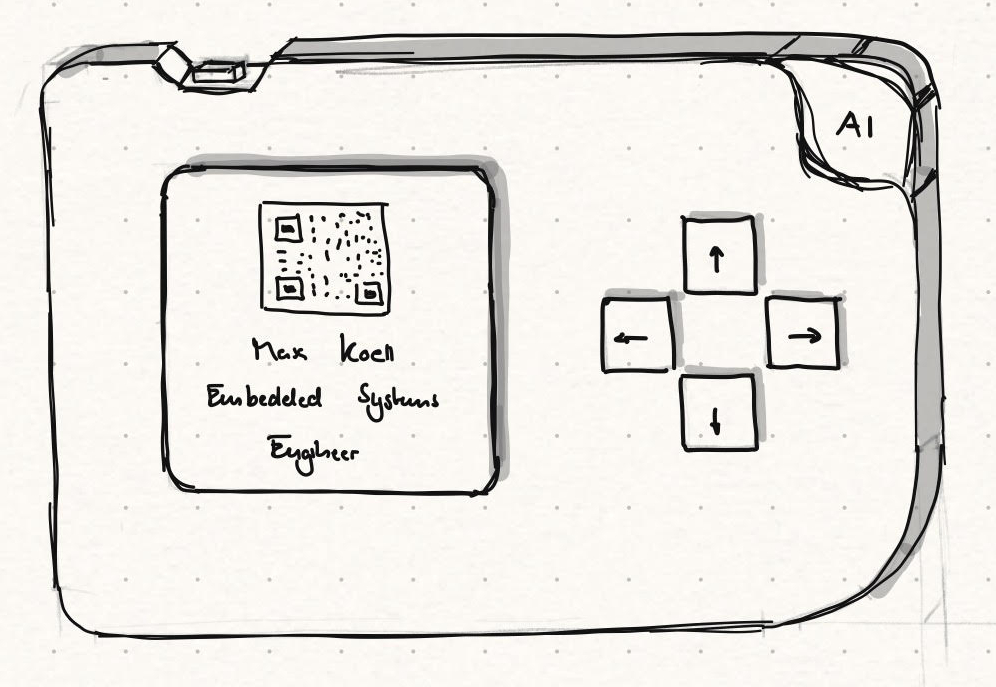 AI
Max Koell
Embedded Systems
Engineer